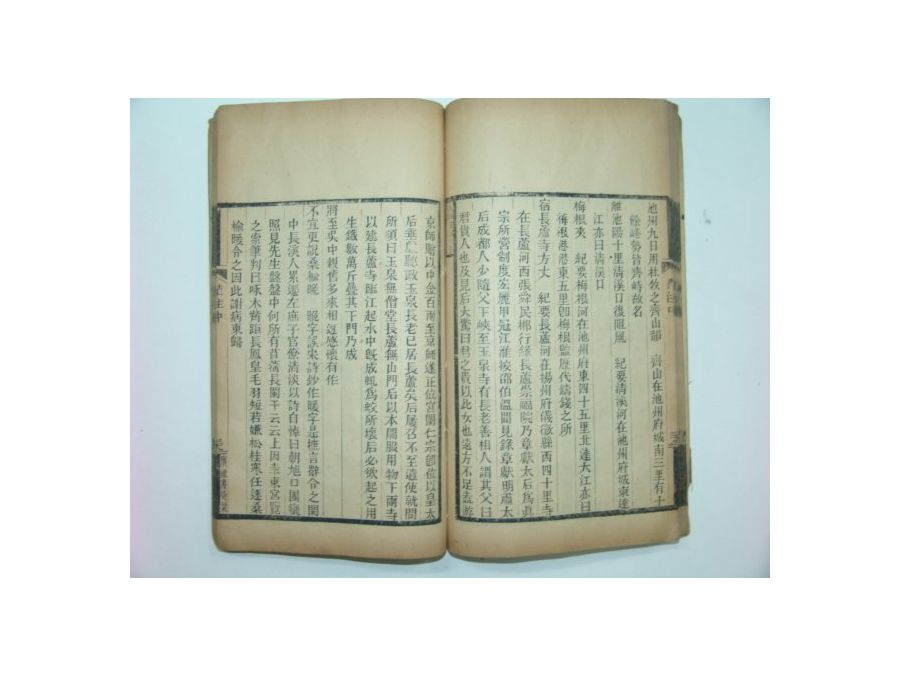 池州九日用杜牧之齊山韻 齊山在池州府城南三里有十
餘峰勢皆齊峙故名
離池陽十里清溪口復阻風 紀要清溪河在池州府城東達
江亦曰清溪口
梅根夾 紀要梅根河在池州府東四十五里北達大江亦曰
梅根港港東五里卽梅根監歷代鑄錢之所
宿長蘆寺方丈 紀要長蘆河在揚州府儀徵縣西四十里寺
在長蘆河西張舜民郴行錄長蘆崇福院乃章獻太后爲眞
宗所營制度宏麗甲冠江淮按邵伯溫聞見錄章獻明肅太
后成都人少隨父下峽至玉泉寺有長老善相人謂其父曰
君貴人也及見后大驚曰君之貴以此女也遠方不足盍遊
京師贈以中金百兩至京師遂正位宮闈仁宗卽位以皇太
后垂簾聽政玉泉長老已居長蘆矣后屢召不至遣使就問
所須曰玉泉無僧堂長蘆無山門后以本閣服用物下兩寺
以成長蘆寺臨江起水中旣成輒爲蛟所壞后必欲起之用
生鐵數萬斤疊其下門乃成
將至吳中親舊多來相迓感懷有作
不宜更說桑楡暖 暖字誤宋詩鈔作暖字是摭言辭令之閩
中長溪人累遷左庶子官僚清淡以詩自悼曰朝旭日團欒
照見先生盤盤中何所有苜蓿長闌干云云上因幸東宮覽
之索筆判曰啄木觜距長鳳皇毛羽短若嫌松桂寒任逐桑
楡暖令之因此謝病東歸